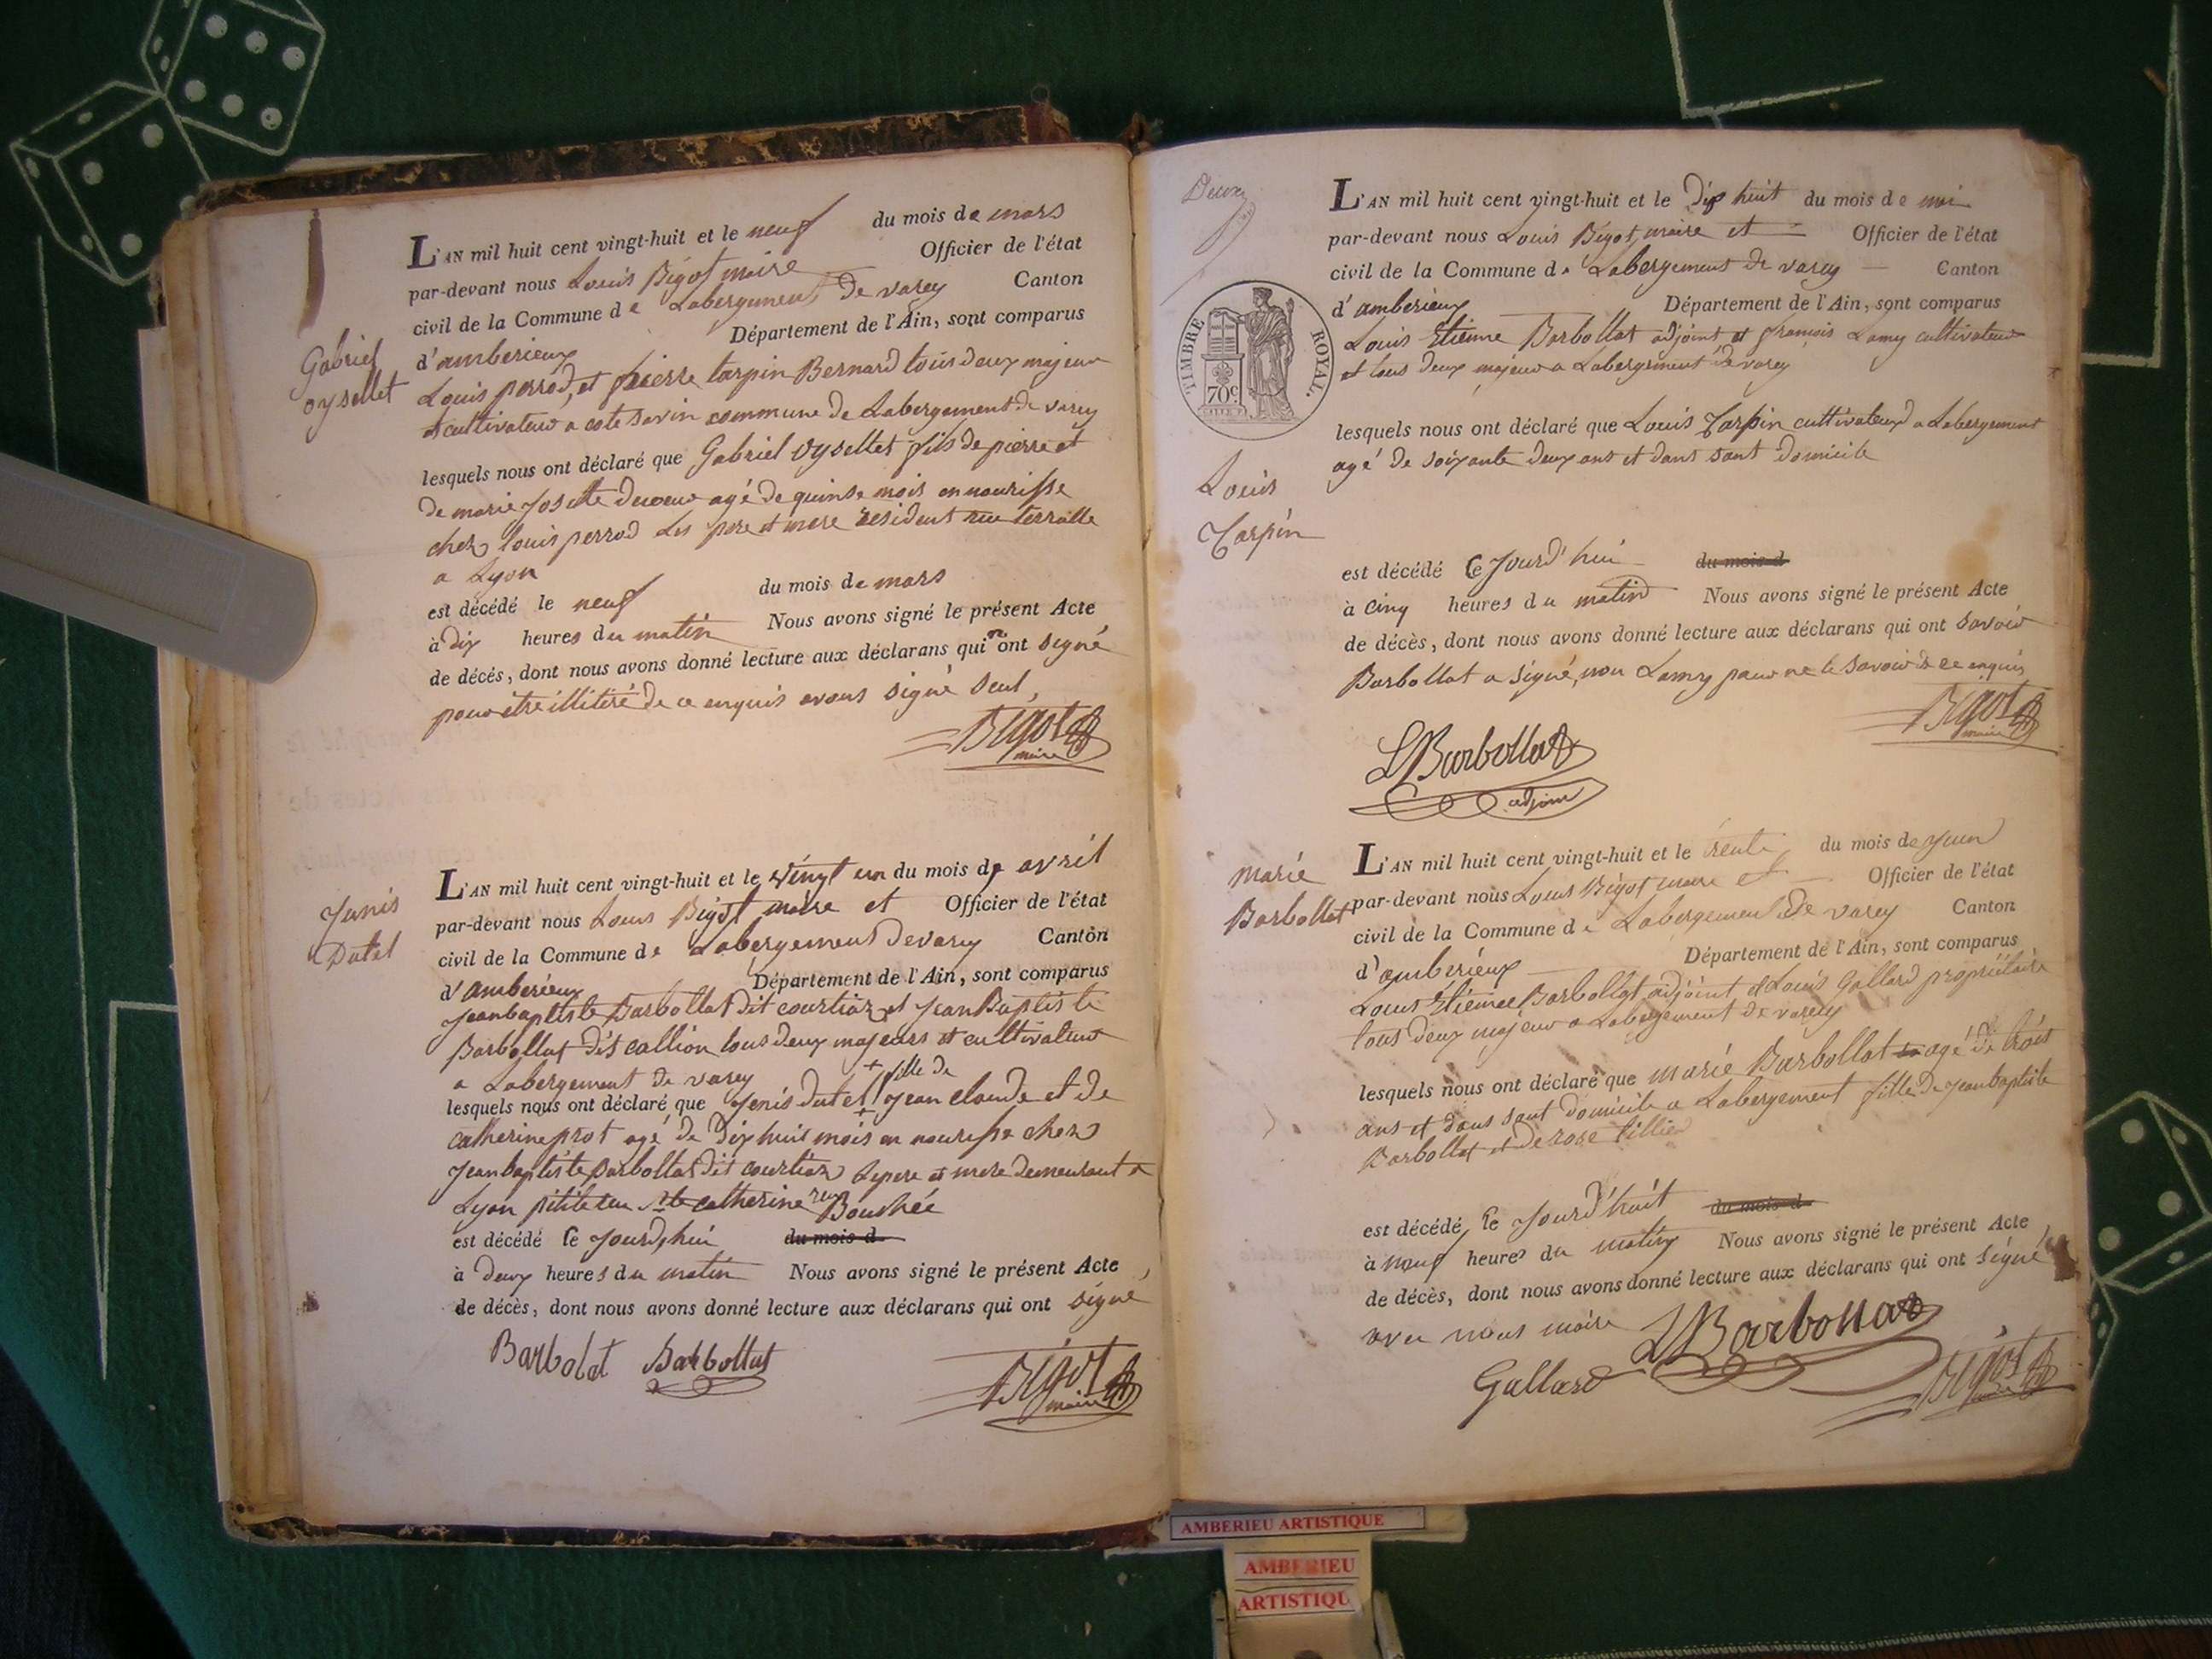 Gabriel
oysellet
L'AN mil huit cent vingt-huit et le neuf du mois de mars
par-devant nous Louis Bigot maire Officier de l'état
civil de la Commune de Labergement de varey Canton
d'amberieux Département de l'Ain, sont comparus
Louis perrod, et pierre tarpin Bernard tous deux majeur
et cultivateur a cote savin commune de Labergement de varey
lesquels nous ont déclaré que Gabriel oysellet fils de pierre et
de marie Josette agé de quinse mois en nourisse
chez louis perrod Les pere et mere resident rue
a Lyon
est décédé le neuf du mois de mars
à dix heures du matin Nous avons signé le présent Acte
de décés, dont nous avons donné lecture aux déclarans qui n'ont signé
pour etre illitiré de ce enquis avons signé seul,
Bigot
maire
Dutel
L'AN mil huit cent vingt-huit et le vingt un du mois de avril
par-devant nous Louis Bigot maire et Officier de l'état
civil de la Commune de Labergement de varey Canton
d'amberieux Département de l'Ain, sont comparus
Jean baptiste Barbollat dit courtiaz et Jean Baptiste
Barbollat dit callion tous deux majeurs et cultivateur
a Labergement de varey
lesquels nous ont déclaré que Jenis dutel + fille de Jean claude et de
catherine prot agé de dix huit mois en nourisse chez
Jean baptiste Barbollat dit courtiaz Le pere et mere demeurant a
Lyon petite rue Ste catherine rue Bouchée
est décédé ce Jourd'hui du mois d
à deux heures du matin Nous avons signé le présent Acte
de décès, dont nous avons donné lecture aux déclarans qui ont signé
Barbolat Barbollat
Bigot
maire
TIMBRE ROYAL.
70c.
Louis
Tarpin
L'AN mil huit cent vingt-huit et le Dix huit du mois de mai
par-devant nous Louis Bigot, maire et Officier de l'état
civil de la Commune de Labergement de varey Canton
d'amberieux Département de l'Ain, sont comparus
Louis Etienne Barbollat adjoint et françois Lamy cultivateur
et tous deux majeur a Labergement de varey
lesquels nous ont déclaré que Louis Tarpin cultivateur a Labergement
agé de soixante deux ans et dans sont domicile
est décédé ce Jourd'hui du mois d
à cinq heures du matin Nous avons signé le présent Acte
de décès, dont nous avons donné lecture aux déclarans qui ont savoir
Barbollat a signé, non Lamy pour ne le savoir de ce enquis
Bigot
maire
LBarbollat
adjoint
marie
Barbollat
L'AN mil huit cent vingt-huit et le trente du mois de Juin
par-devant nous Louis Bigot maire et Officier de l'état
civil de la Commune de Labergement de varey Canton
d'amberieux Département de l'Ain, sont comparus
Louis Etienne Barbollat adjoint et Louis Gallard propriétaire
tous deux majeur a Labergement de varey
lesquels nous ont déclaré que marie Barbollat agé de trois
ans et dans sont domicile a Labergement fille de Jean baptiste
Barbollat et de rose tillier
est décédé, ce Jourd'huit du mois d
à neuf heures du matin Nous avons signé le présent Acte,
de décès, dont nous avons donné lecture aux déclarans qui ont signé
avec nous maire LBarbollat
Gallard
Bigot
maire
AMBERIEU ARTISTIQUE
AMBERIEU
ARTISTIQU